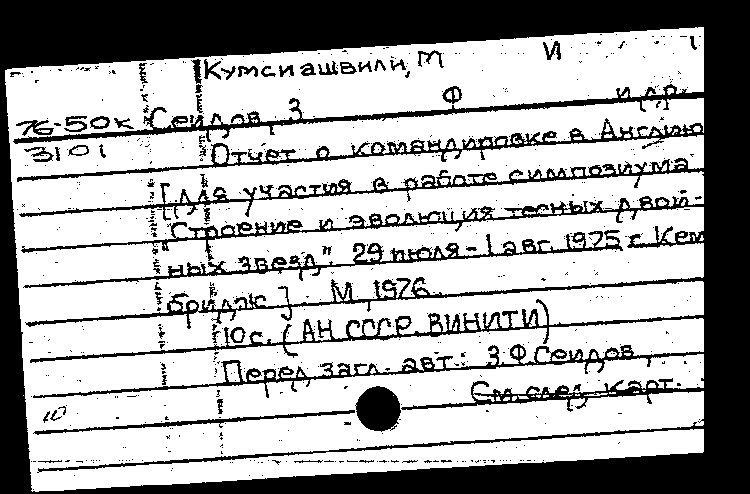 Кумсиашвили, М И
76-50к Сеидов, З Ф и др.
3101 Отчет о командировке в Англию
[для участия в работе симпозиума
"Строение и эволюция тесных двой-
ных звезд". 29 июля - 1 авг. 1975 г. Кем
бридж]. М, 1976.
10 с. (АН СССР. ВИНИТИ)
Перед загл. авт.: З.Ф. Сеидов,
См. след. карт.